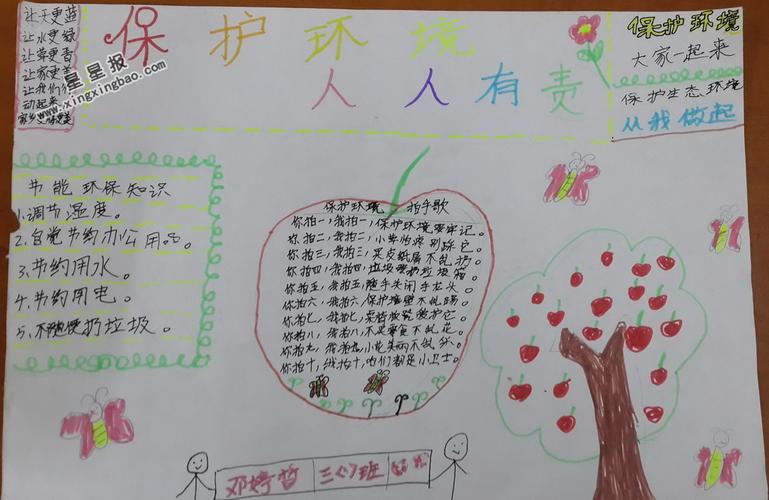 让天更蓝
让水更绿
让草更香
让家更美
让我们行
动起来
星星报
www.xingxingbao.com
保护环境
人人有责
保护环境
大家一起来
保护生态环境
从我做起
节能环保知识
1.调节湿度。
2.自觉节约办公用品。
3.节约用水。
4.节约用电。
5.不随便扔垃圾。
保护环境 拍手歌
你拍一,我拍一,保护环境要牢记。
你拍二,我拍二,小草怕来别踩它。
你拍三,我拍三,果皮纸屑不乱扔。
你拍四,我拍四,垃圾要扔垃圾箱。
你拍五,我拍五,随手关闭水龙头。
你拍六,我拍六,保护墙壁不乱踢。
你拍七,我拍七,爱护它。
你拍八,我拍八,不买零食不乱花。
你拍九,我拍九,不乱
你拍十,我拍十,咱们都是小卫士。
邓婷哲 三(7)班